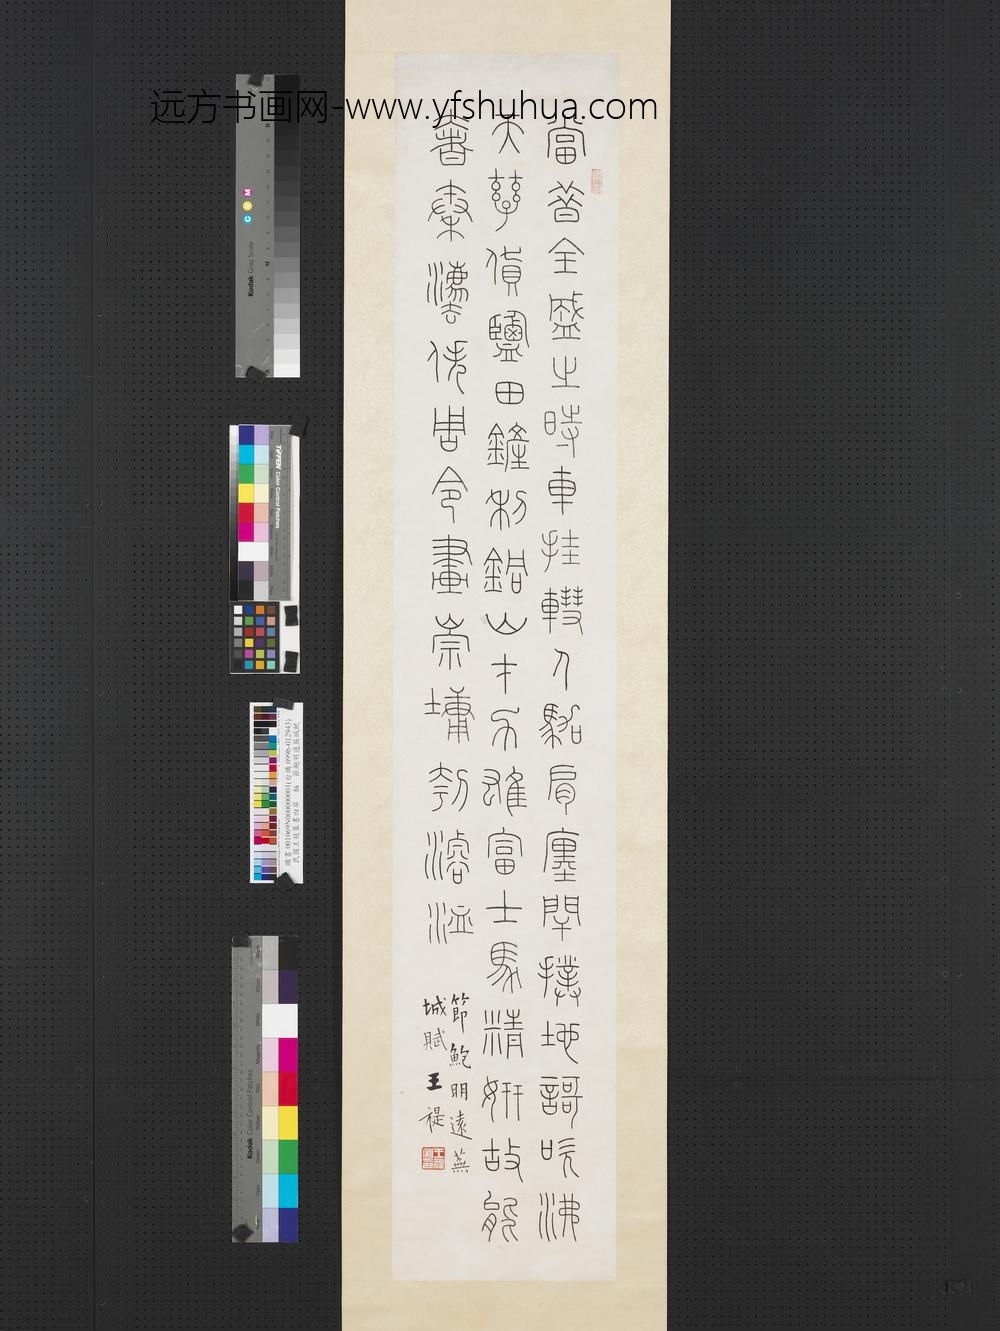 远方书画网-www.yfshuhua.com
當昔全盛之時車挂轊人駕肩廛閈撲地謌吹沸
天孳貨鹽田鏟利銅山才力雄富士馬精妍故能
奢秦灋佚周令畫崇墉刳濬洫
節鮑明遠蕪
城賦王禔
Kodak Gray Scale
C Y M
TIFFEN Color Control Patches
Kodak Color Control Patches